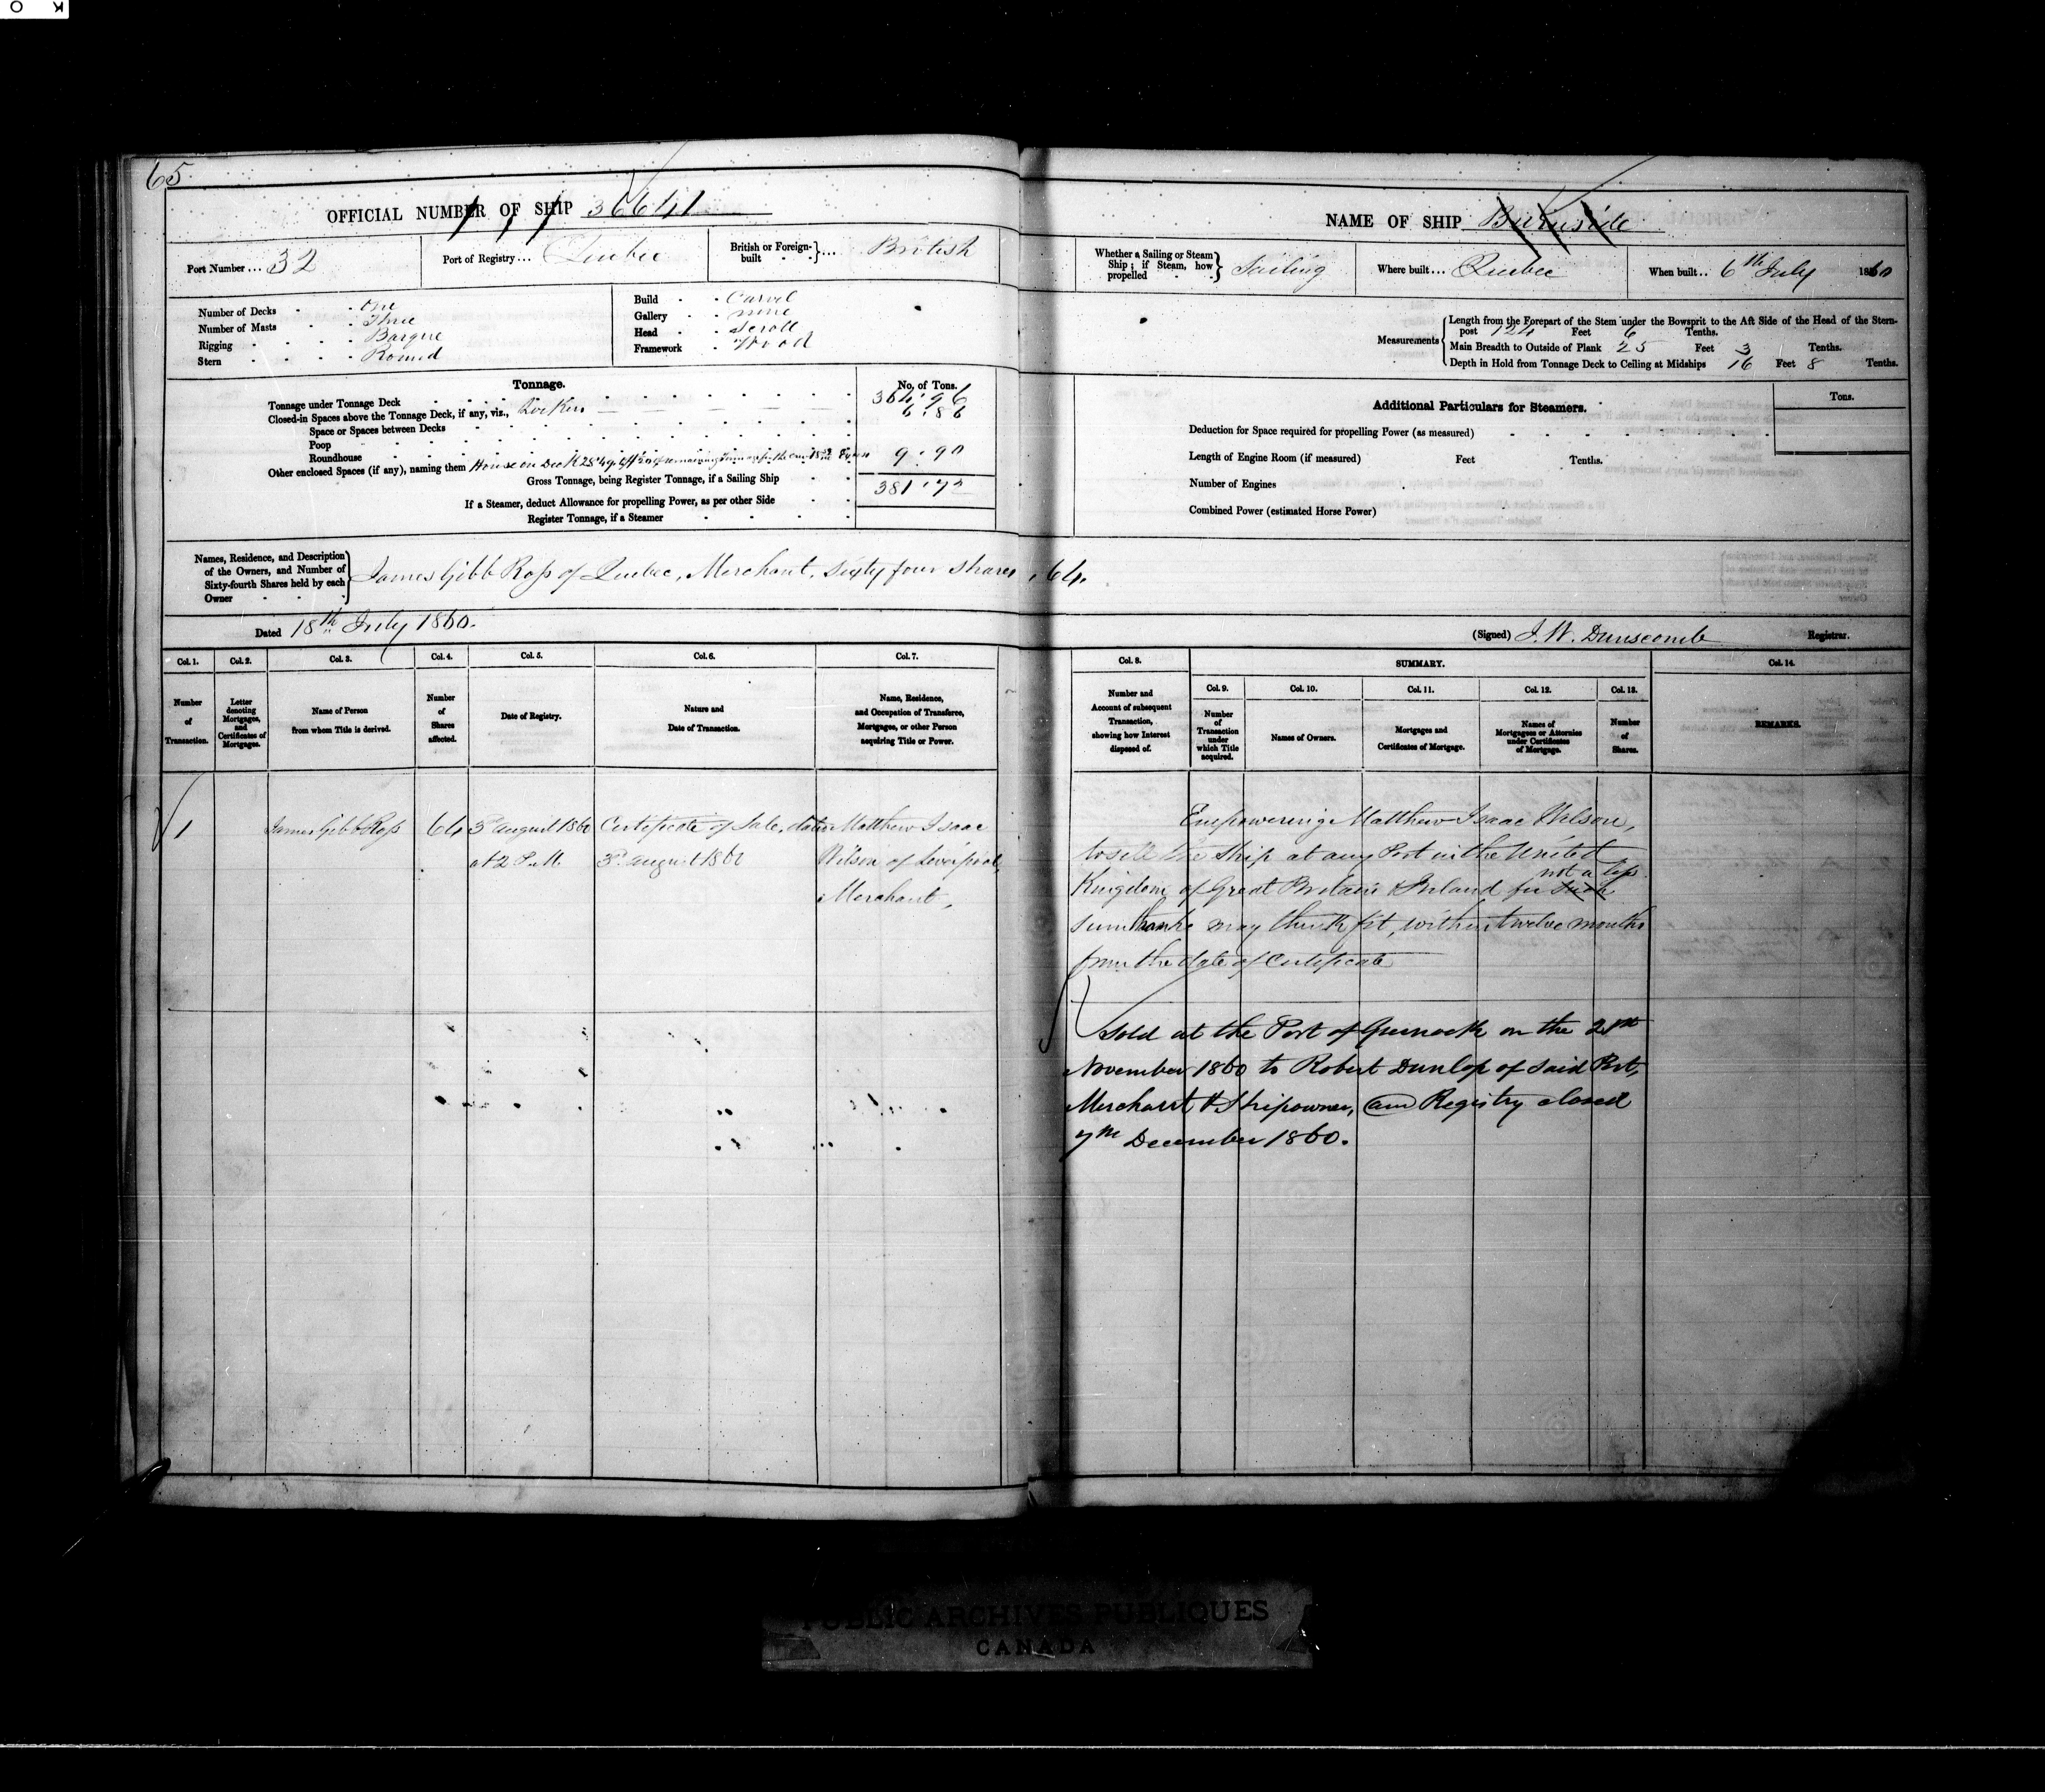 65
OFFICIAL NUMBER OF SHIP 36641
NAME OF SHIP Burnside
Port Number ... 32
Port of Registry ... Quebec
British or Foreign-built ... British
Whether a Sailing or Steam Ship; if Steam, how propelled Sailing
Where built ... Quebec
When built .. 6th July 1860
Number of Decks One
Number of Masts Three
Rigging Barque
Stern Round
Build Carvel
Gallery none
Head Scroll
Framework Wood
Measurements
Length from the Forepart of the Stem under the Bowsprit to the Aft Side of the Head of the Stern-
post 124 Feet 6 Tenths.
Main Breadth to Outside of Plank 25 Feet 3 Tenths.
Depth in Hold from Tonnage Deck to Ceiling at Midships 16 Feet 8 Tenths.
Tonnage. No. of Tons.
Tonnage under Tonnage Deck 364.96
Closed-in Spaces above the Tonnage Deck, if any, viz., Lockers 6.86
Space or Spaces between Decks
Poop
Roundhouse
Other enclosed Spaces (if any), naming them House on Deck 9.90
Gross Tonnage, being Register Tonnage, if a Sailing Ship 381.72
If a Steamer, deduct Allowance for propelling Power, as per other Side
Register Tonnage, if a Steamer
Additional Particulars for Steamers.
Tons.
Deduction for Space required for propelling Power (as measured)
Length of Engine Room (if measured) Feet Tenths.
Number of Engines
Combined Power (estimated Horse Power)
Names, Residence, and Description
of the Owners, and Number of
Sixty-fourth Shares held by each
Owner
James Gibb Ross of Quebec, Merchant, Sixty four shares, 64.
Dated 18th July 1860.
(Signed) J. W. Dunscomb Registrar.
Col. 1. Col. 2. Col. 3. Col. 4. Col. 5. Col. 6. Col. 7.
Number of Transaction.
Letter denoting Mortgages, and Certificates of Mortgages.
Name of Person from whom Title is derived.
Number of Shares affected.
Date of Registry.
Nature and Date of Transaction.
Name, Residence, and Occupation of Transferee, Mortgagee, or other Person acquiring Title or Power.
Col. 8. SUMMARY. Col. 14.
Col. 9. Col. 10. Col. 11. Col. 12. Col. 13.
Number and Account of subsequent Transaction, showing how Interest disposed of.
Number of Transaction under which Title acquired.
Names of Owners.
Mortgages and Certificates of Mortgage.
Names of Mortgagees or Attornies under Certificates of Mortgage.
Number of Shares.
REMARKS.
1 James Gibb Ross 64 3d August 1860 Certificate of Sale, dated Matthew Isaac
at 2 P.M. 3d August 1860 Wilson of Liverpool,
Merchant,
Empowering Matthew Isaac Wilson,
to sell the Ship at any Port in the United
Kingdom of Great Britain & Ireland for such not a less
sum than he may think fit, within twelve months
from the date of Certificate
Sold at the Port of Greenock on the
November 1860 to Robert Dunlop of said Port,
Merchant & Shipowner, and Registry closed
7th December 1860.
PUBLIC ARCHIVES PUBLIQUES
CANADA